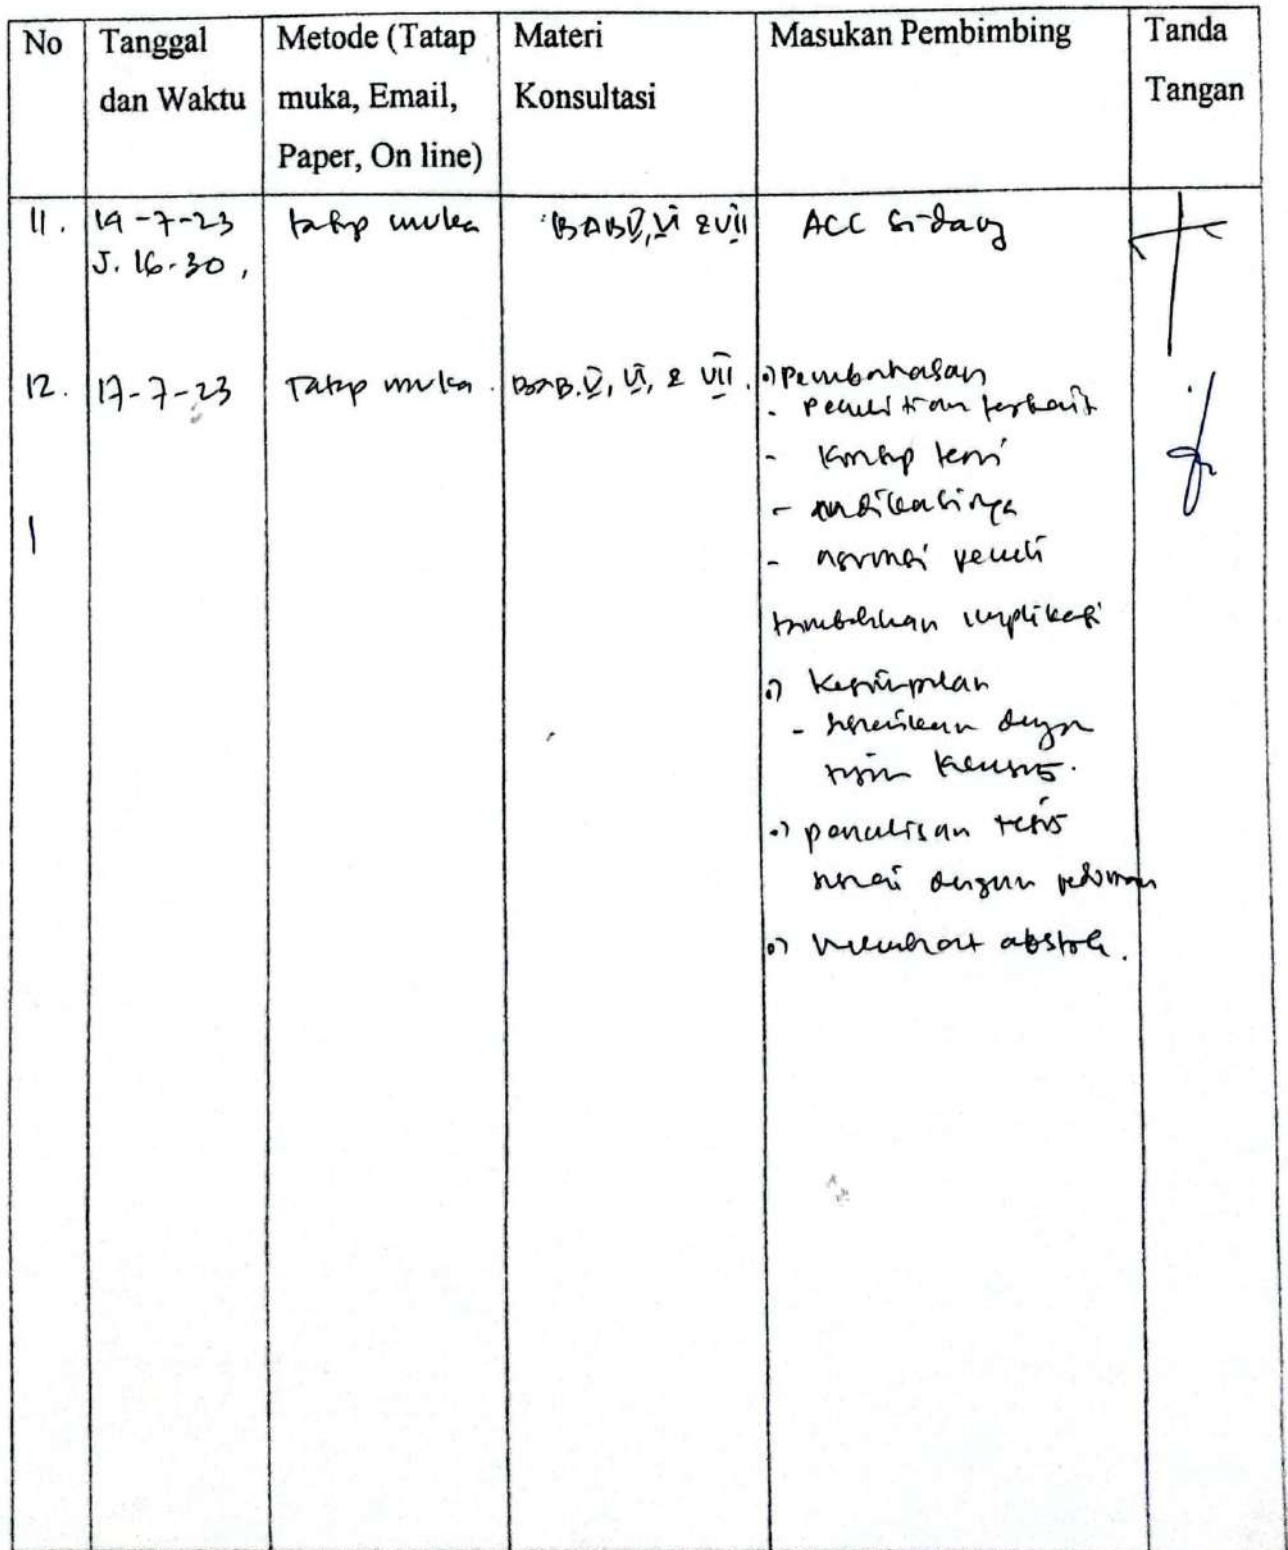 No
Tanggal
dan Waktu
Metode (Tatap
muka, Email,
Paper, On line)
Materi
Konsultasi
Masukan Pembimbing
Tanda
Tangan
11.
19-7-23
J. 16.30,
tatap muka
BAB V, VI & VII
ACC Sidang
12.
17-7-23
Tatap muka.
BAB. V, VI, & VII.
Pembahasan
- Penelitian terkait
- Konsep teori
-
- asumsi peneliti
tambahkan implikasi
Kesimpulan
- sesuaikan dengan
tujuan khusus.
penulisan tesis
sesuai dengan pedoman
Membuat abstrak.